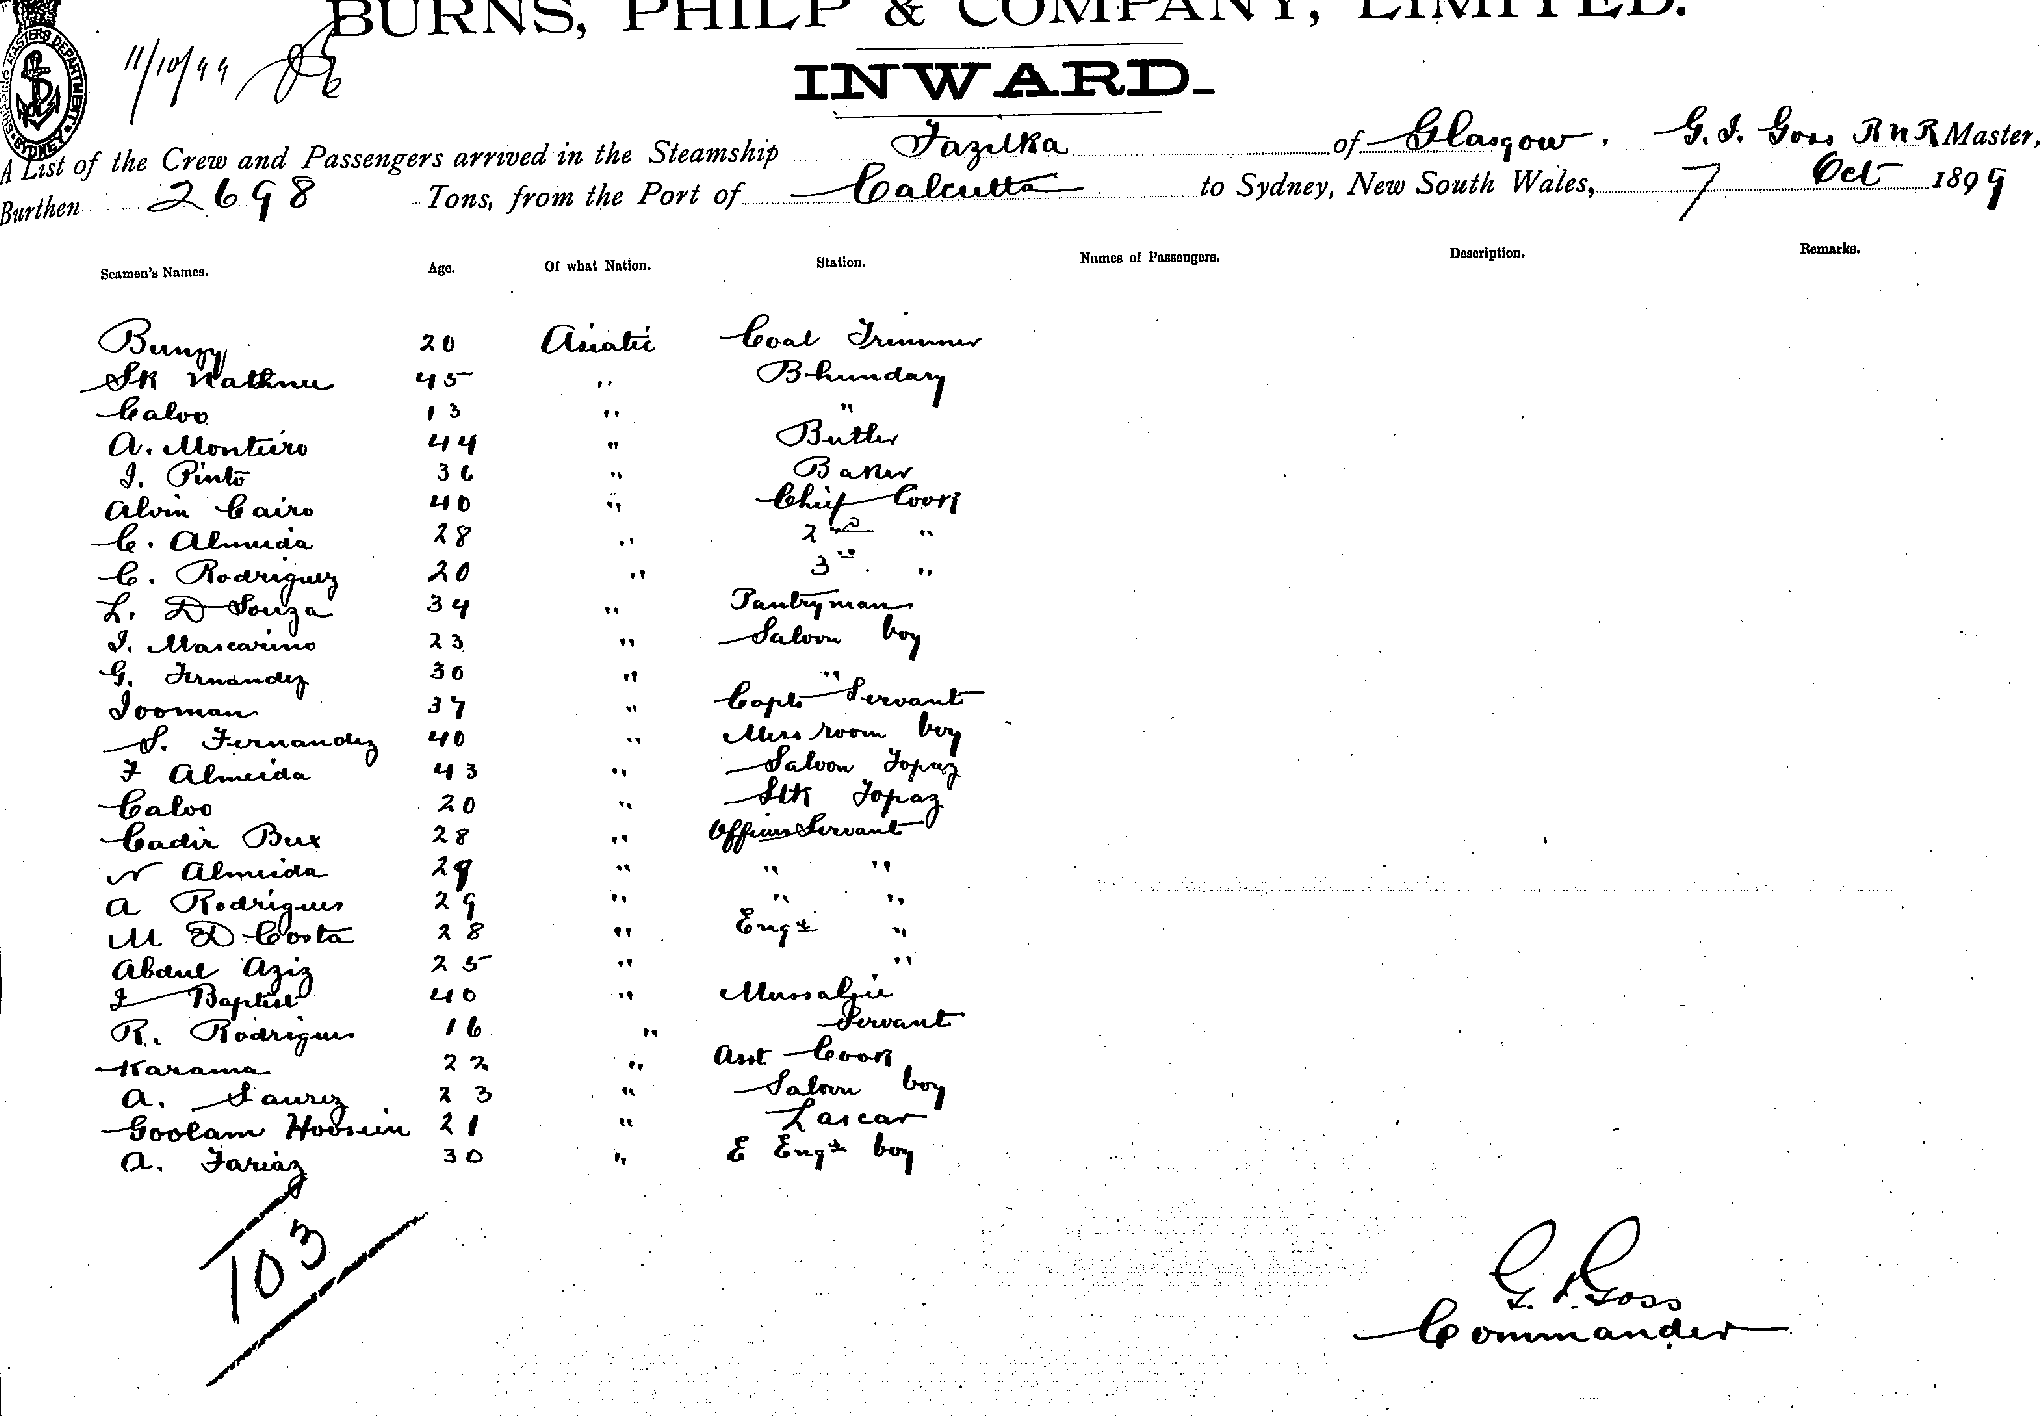 BURNS, PHILP & COMPANY, LIMITED.
11/10/99
INWARD.
A List of the Crew and Passengers arrived in the Steamship Fazilka of Glasgow. G. I. Goss R N R Master,
Burthen 2698 Tons, from the Port of Calcutta to Sydney, New South Wales, 7 Oct 1899
Seamen's Names. Age. Of what Nation. Station. Names of Passengers. Description. Remarks.
Bunzy 20 Asiatic Coal Trimmer
Sk Nathnu 45 " Bhundary
Caloo 13 " "
A. Monteiro 44 " Butler
J. Pinto 36 " Baker
Alvin Cairo 40 " Chief Cook
C. Almeida 28 " 2nd "
C. Rodriguez 20 " 3rd "
L. D Souza 34 " Pantryman
J. Mascarino 23 " Saloon boy
G. Fernandez 30 " "
Jooman 37 " Capts Servant
S. Fernandez 40 " Mess room boy
F Almeida 43 " Saloon Topaz
Caloo 20 " Stk Topaz
Cadir Bux 28 " Officers Servant
N Almeida 29 " " "
A Rodrigues 29 " " "
M D Costa 28 " Engrs "
Abdul Aziz 25 " "
J Baptist 40 " Mussalgie
R. Rodrigues 16 " Servant
Karama 22 " Asst Cook
A. Saurez 23 " Saloon boy
Goolam Hoosein 21 " Lascar
A. Fariaz 30 " E Engrs boy
103
G. I. Goss
Commander